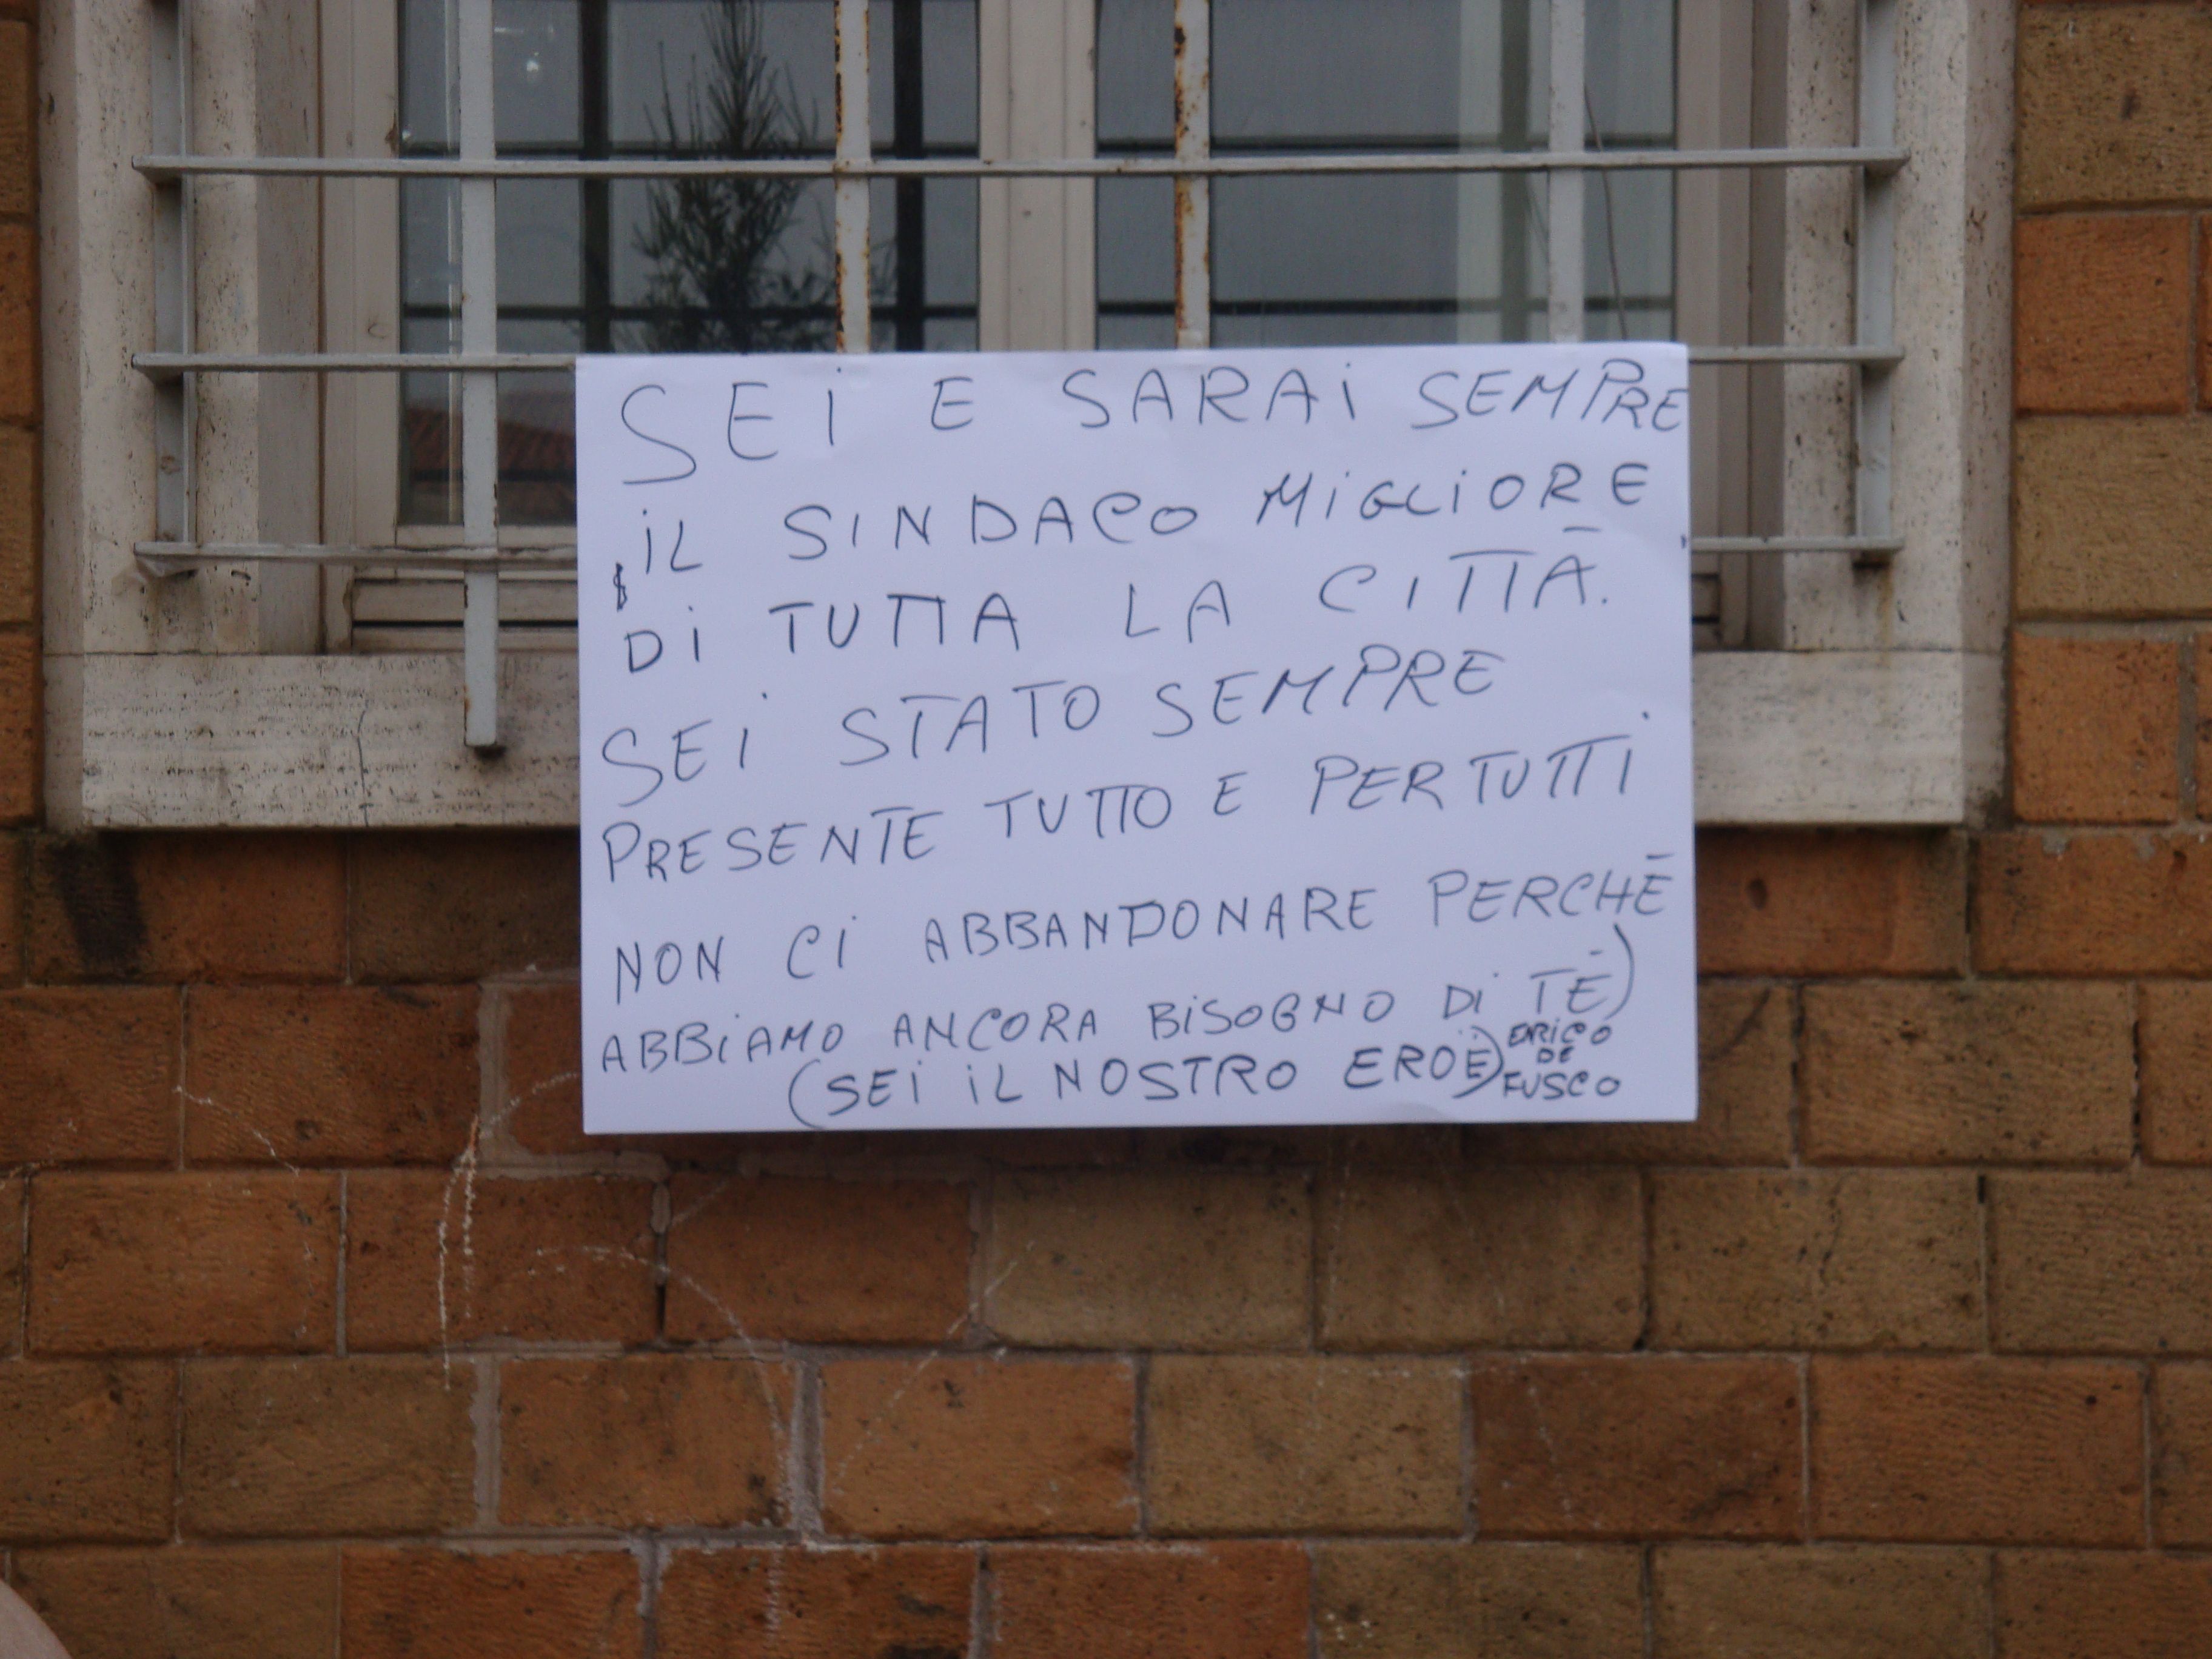 SEi E SARAi SEMPRE
iL SINDACO MiGLiORE
Di TUTTA LA CITTĀ.
SEi STATO SEMPRE
PRESENTE TUTTO E PER TUTTI
NON Ci ABBANDONARE PERCHĒ
ABBiAMO ANCORA BiSOGNO Di TĒ)
(SEi iL NOSTRO EROĖ)
ENRiCO
DE
FUSCO